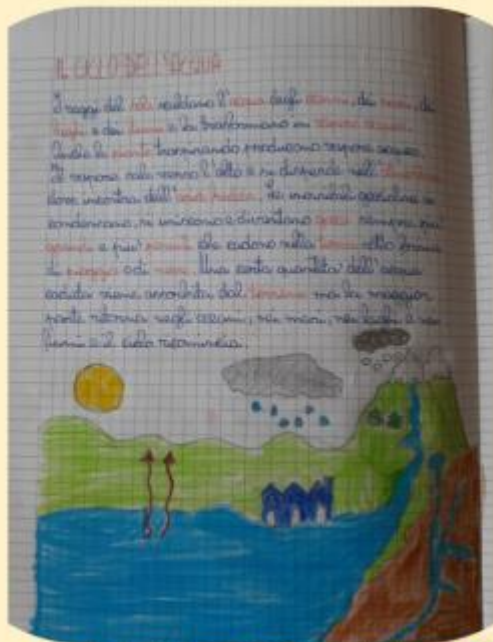 IL CICLO DELL'ACQUA
I raggi del sole scaldano l'acqua degli oceani, dei mari, dei
laghi e dei fiumi e la trasformano in vapore acqueo.
Anche le piante traspirando producono vapore acqueo.
Il vapore sale verso l'alto e si disperde nell'atmosfera
dove incontra dell'aria fredda. Le invisibili goccioline si
condensano, si uniscono e diventano gocce sempre più
grandi e più pesanti che cadono sulla terra sotto forma
di pioggia o di neve. Una certa quantità dell'acqua
caduta viene assorbita dal terreno ma la maggior
parte ritorna negli oceani, nei mari, nei laghi e nei
fiumi e il ciclo ricomincia.